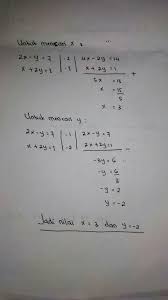 Untuk mencari x :
2x - y = 7 | 2 | 4x - 2y = 14
x + 2y = 1 | 1 | x + 2y = 1 +
5x = 15
x = 15
5
x = 3
Untuk mencari y :
2x - y = 7 | 1 | 2x - y = 7
x + 2y = 1 | 2 | 2x + 2y = 1 -
-3y = 6
-y = 6
3
-y = 2
y = -2
Jadi nilai x = 3 dan y = -2